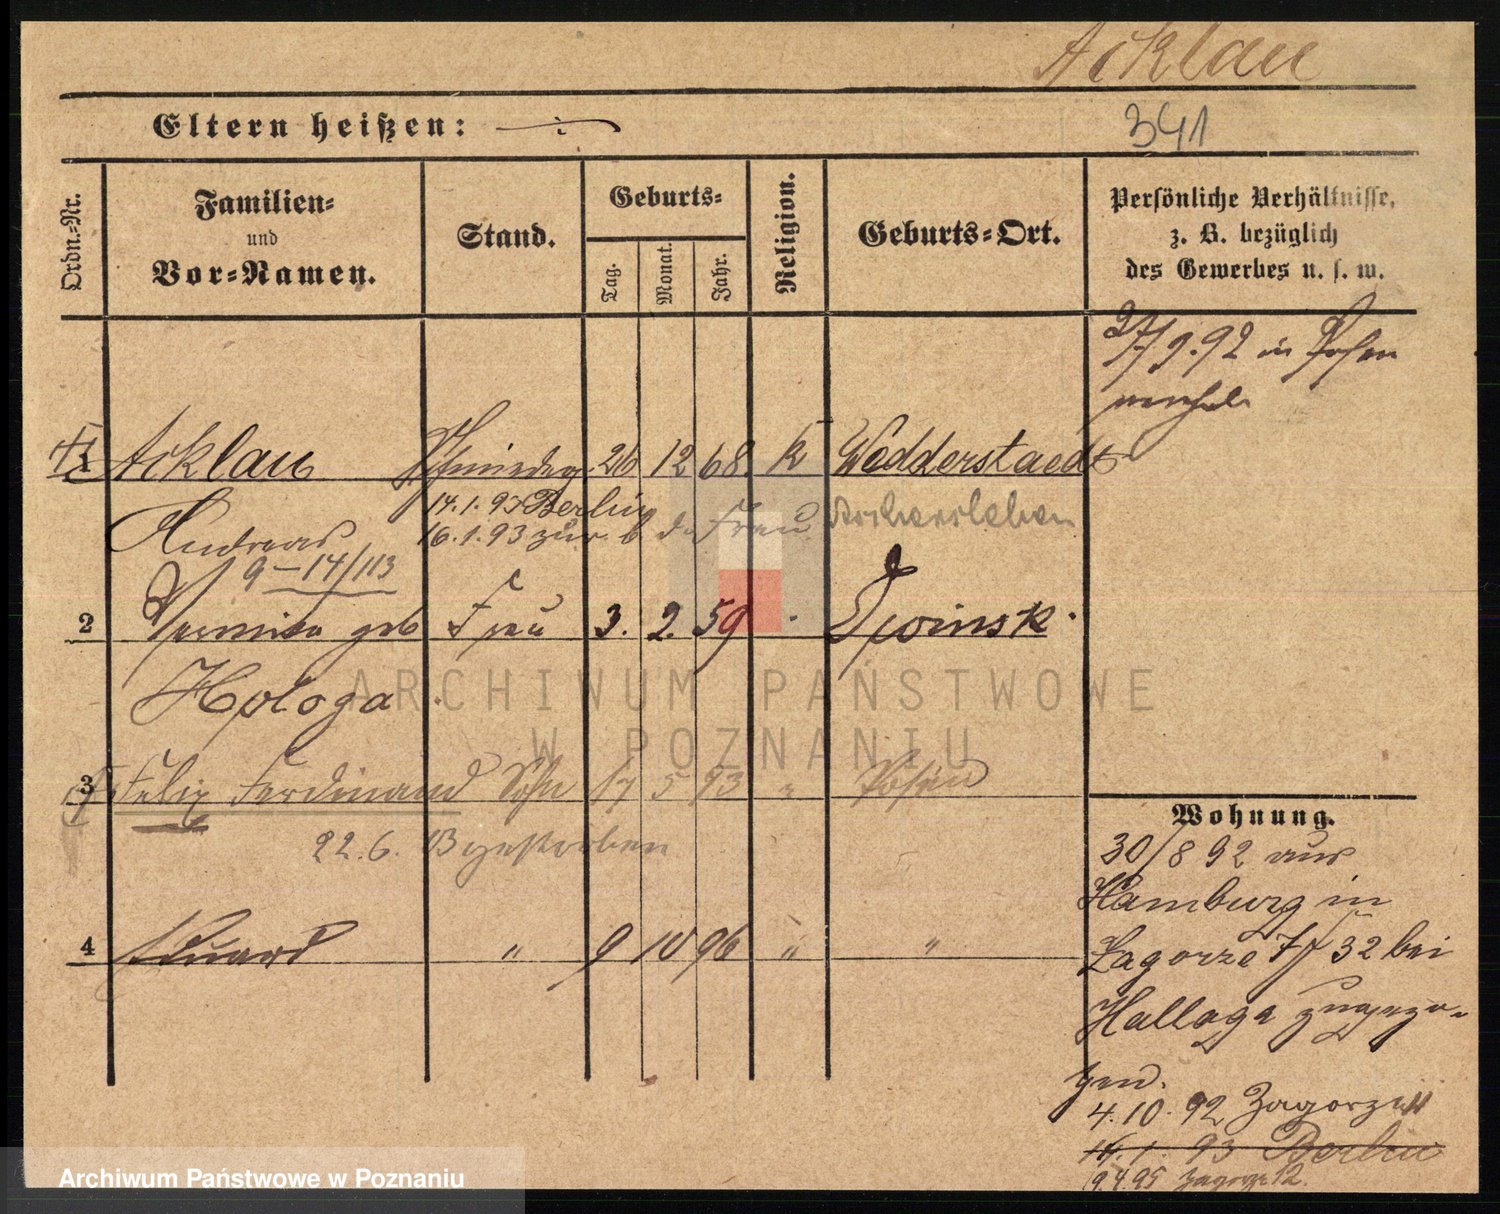 Acklau
Eltern heißen:
341
Ordn.-Nr.
Familien-
und
Vor-Namen.
Stand.
Geburts-
Tag.
Monat.
Jahr.
Religion.
Geburts-Ort.
Persönliche Verhältnisse,
z. B. bezüglich
des Gewerbes u. s. w.
27/9.92 in Posen
1 Acklau Schmiedeg 26 12 68 k Wedderstaedt
14.1.93 Berlin
Andreas 16.1.93 zur. b d. Frau Aschersleben
9–14/113
2 geb Frau 3. 2. 59 "
Hologa
3 Felix Ferdinand Sohn 17 5 93 " Posen
22.6. gestorben
4 Eduard " 9 10 96 " "
Wohnung.
30/8 92 aus
Hamburg in
Zagorze 7/ 32 bei
Hallaga zugezo-
gen.
4.10.92 Zagorze 11
16.1.93 Berlin
9.4.95 Zagorze 12.
ARCHIWUM PAŃSTWOWE
W POZNANIU
Archiwum Państwowe w Poznaniu